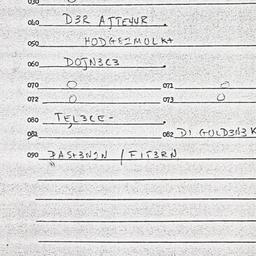 030
040 D3R AJTEVVR
050 HODGEZMOLKA
060 DOJN3C3
070 O 071 O
072 O 073 O
080 TEL3CE-
081 082 DI GOLD3N3K
090 / FIT3RN